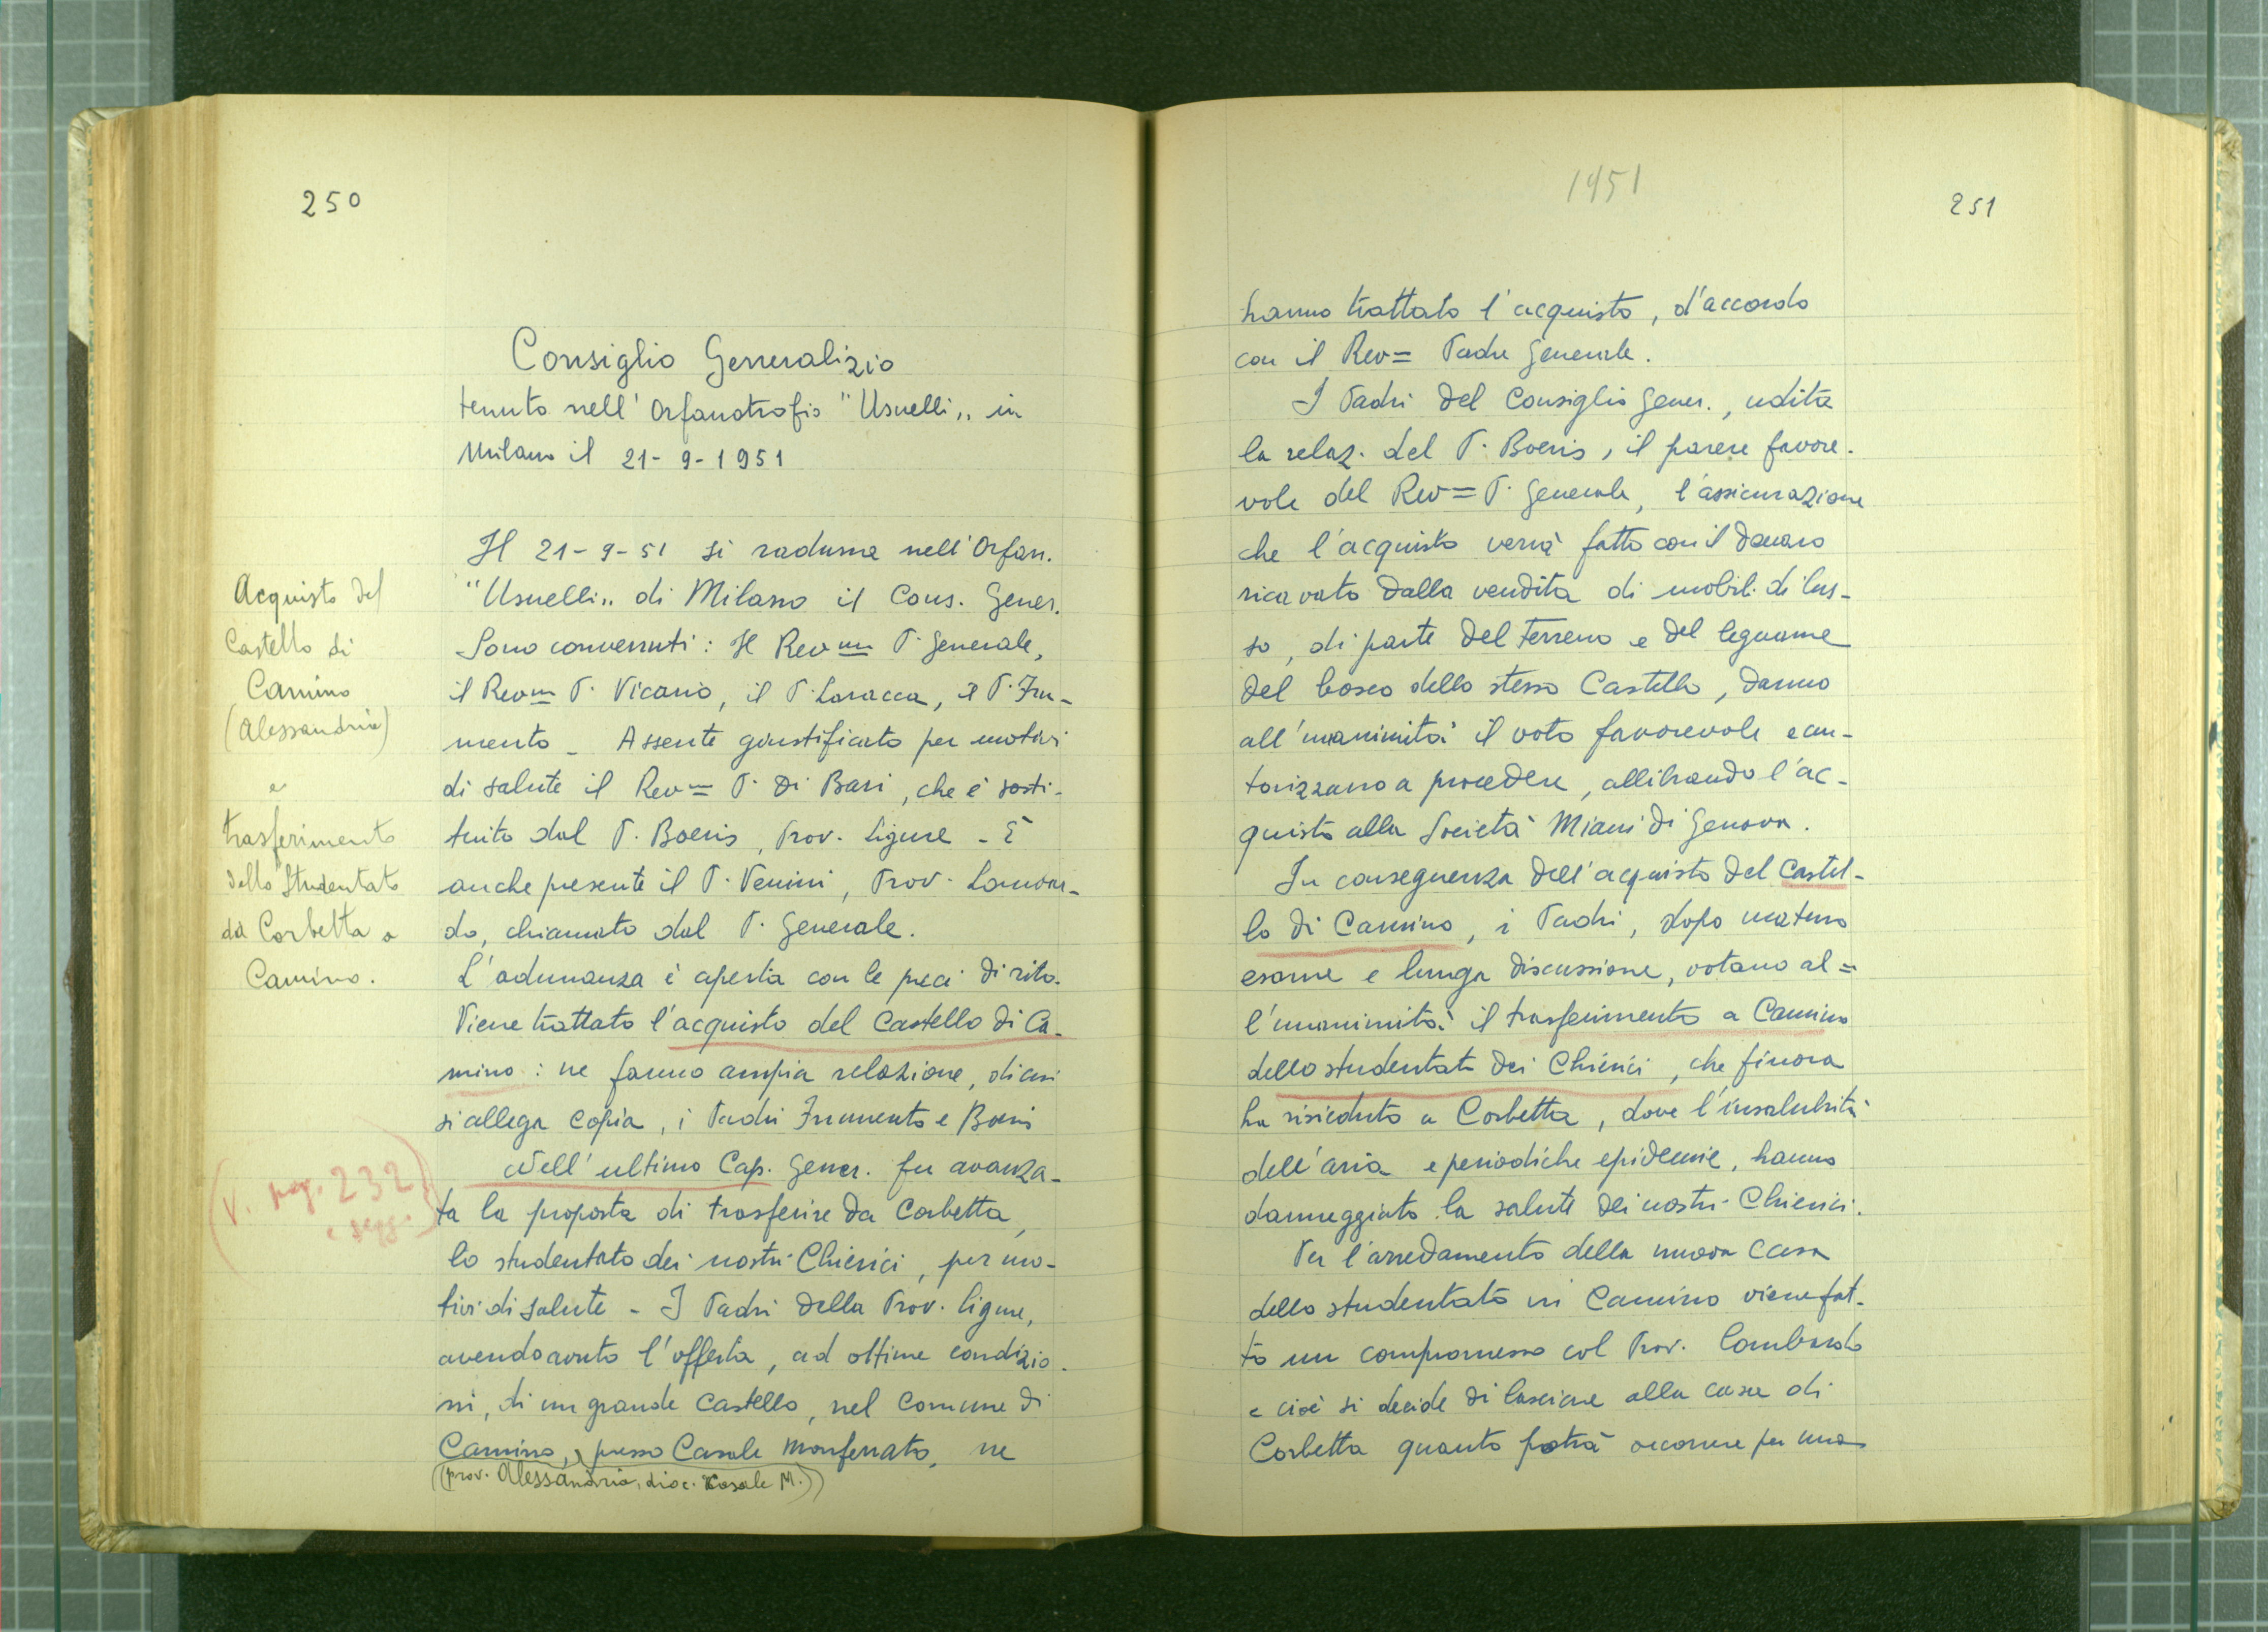 250
Consiglio Generalizio
tenuto nell' Orfanotrofio "Usuelli„ in
Milano il 21-9-1951
Il 21-9-51 si raduna nell'Orfan.
"Usuelli„ di Milano il Cons. Gener.
Sono convenuti: Il Revm P. Generale,
il Revm P. Vicario, il P. Laracca, il P. Fru-
mento _ Assente giustificato per motivi
di salute il Revm P. Di Bari, che è sosti-
tuito dal P. Boeris, Prov. Ligure - È
anche presente il P. Venini, Prov. Lombar-
do, chiamato dal P. Generale.
L'adunanza è aperta con le preci di rito.
Viene trattato l'acquisto del Castello di Ca-
mino: ne fanno ampia relazione, di cui
si allega copia, i Padri Frumento e Boeris
Nell'ultimo Cap. Gener. fu avanza-
ta la proposta di trasferire da Corbetta,
lo studentato dei nostri Chierici, per mo-
tivi di salute - I Padri della Prov. ligure,
avendo avuto l'offerta, ad ottime condizio-
ni, di un grande Castello, nel Comune di
Camino, presso Casale Monferrato, ne
(prov. Alessandria, dioc. Casale M.)
Acquisto del
Castello di
Camino
(Alessandria)
e
trasferimento
dello Studentato
da Corbetta a
Camino.
(V. pag. 232
e segg.)
1951
251
hanno trattato l'acquisto, d'accordo
con il Rev= Padre Generale.
I Padri del Consiglio Gener., udita
la relaz. del P. Boeris, il parere favore-
vole del Rev= P. Generale, l'assicurazione
che l'acquisto verrà fatto con il denaro
ricavato dalla vendita di mobil. di lus-
so, di parte del terreno e del legname
del bosco dello stesso Castello, danno
all'unanimità il voto favorevole e au-
torizzano a procedere, allibrando l'ac-
quisto alla Società Miani di Genova.
In conseguenza dell'acquisto del Castel-
lo di Camino, i Padri, dopo maturo
esame e lunga discussione, votano al=
l'unanimità il trasferimento a Camino
dello studentato dei Chierici, che finora
ha risieduto a Corbetta, dove l'insalubrità
dell'aria e periodiche epidemie, hanno
danneggiato la salute dei nostri Chierici.
Per l'arredamento della nuova casa
dello studentato in Camino viene fat-
to un compromesso col Prov. Lombardo
e cioè si decide di lasciare alla casa di
Corbetta quanto potrà occorrere per una